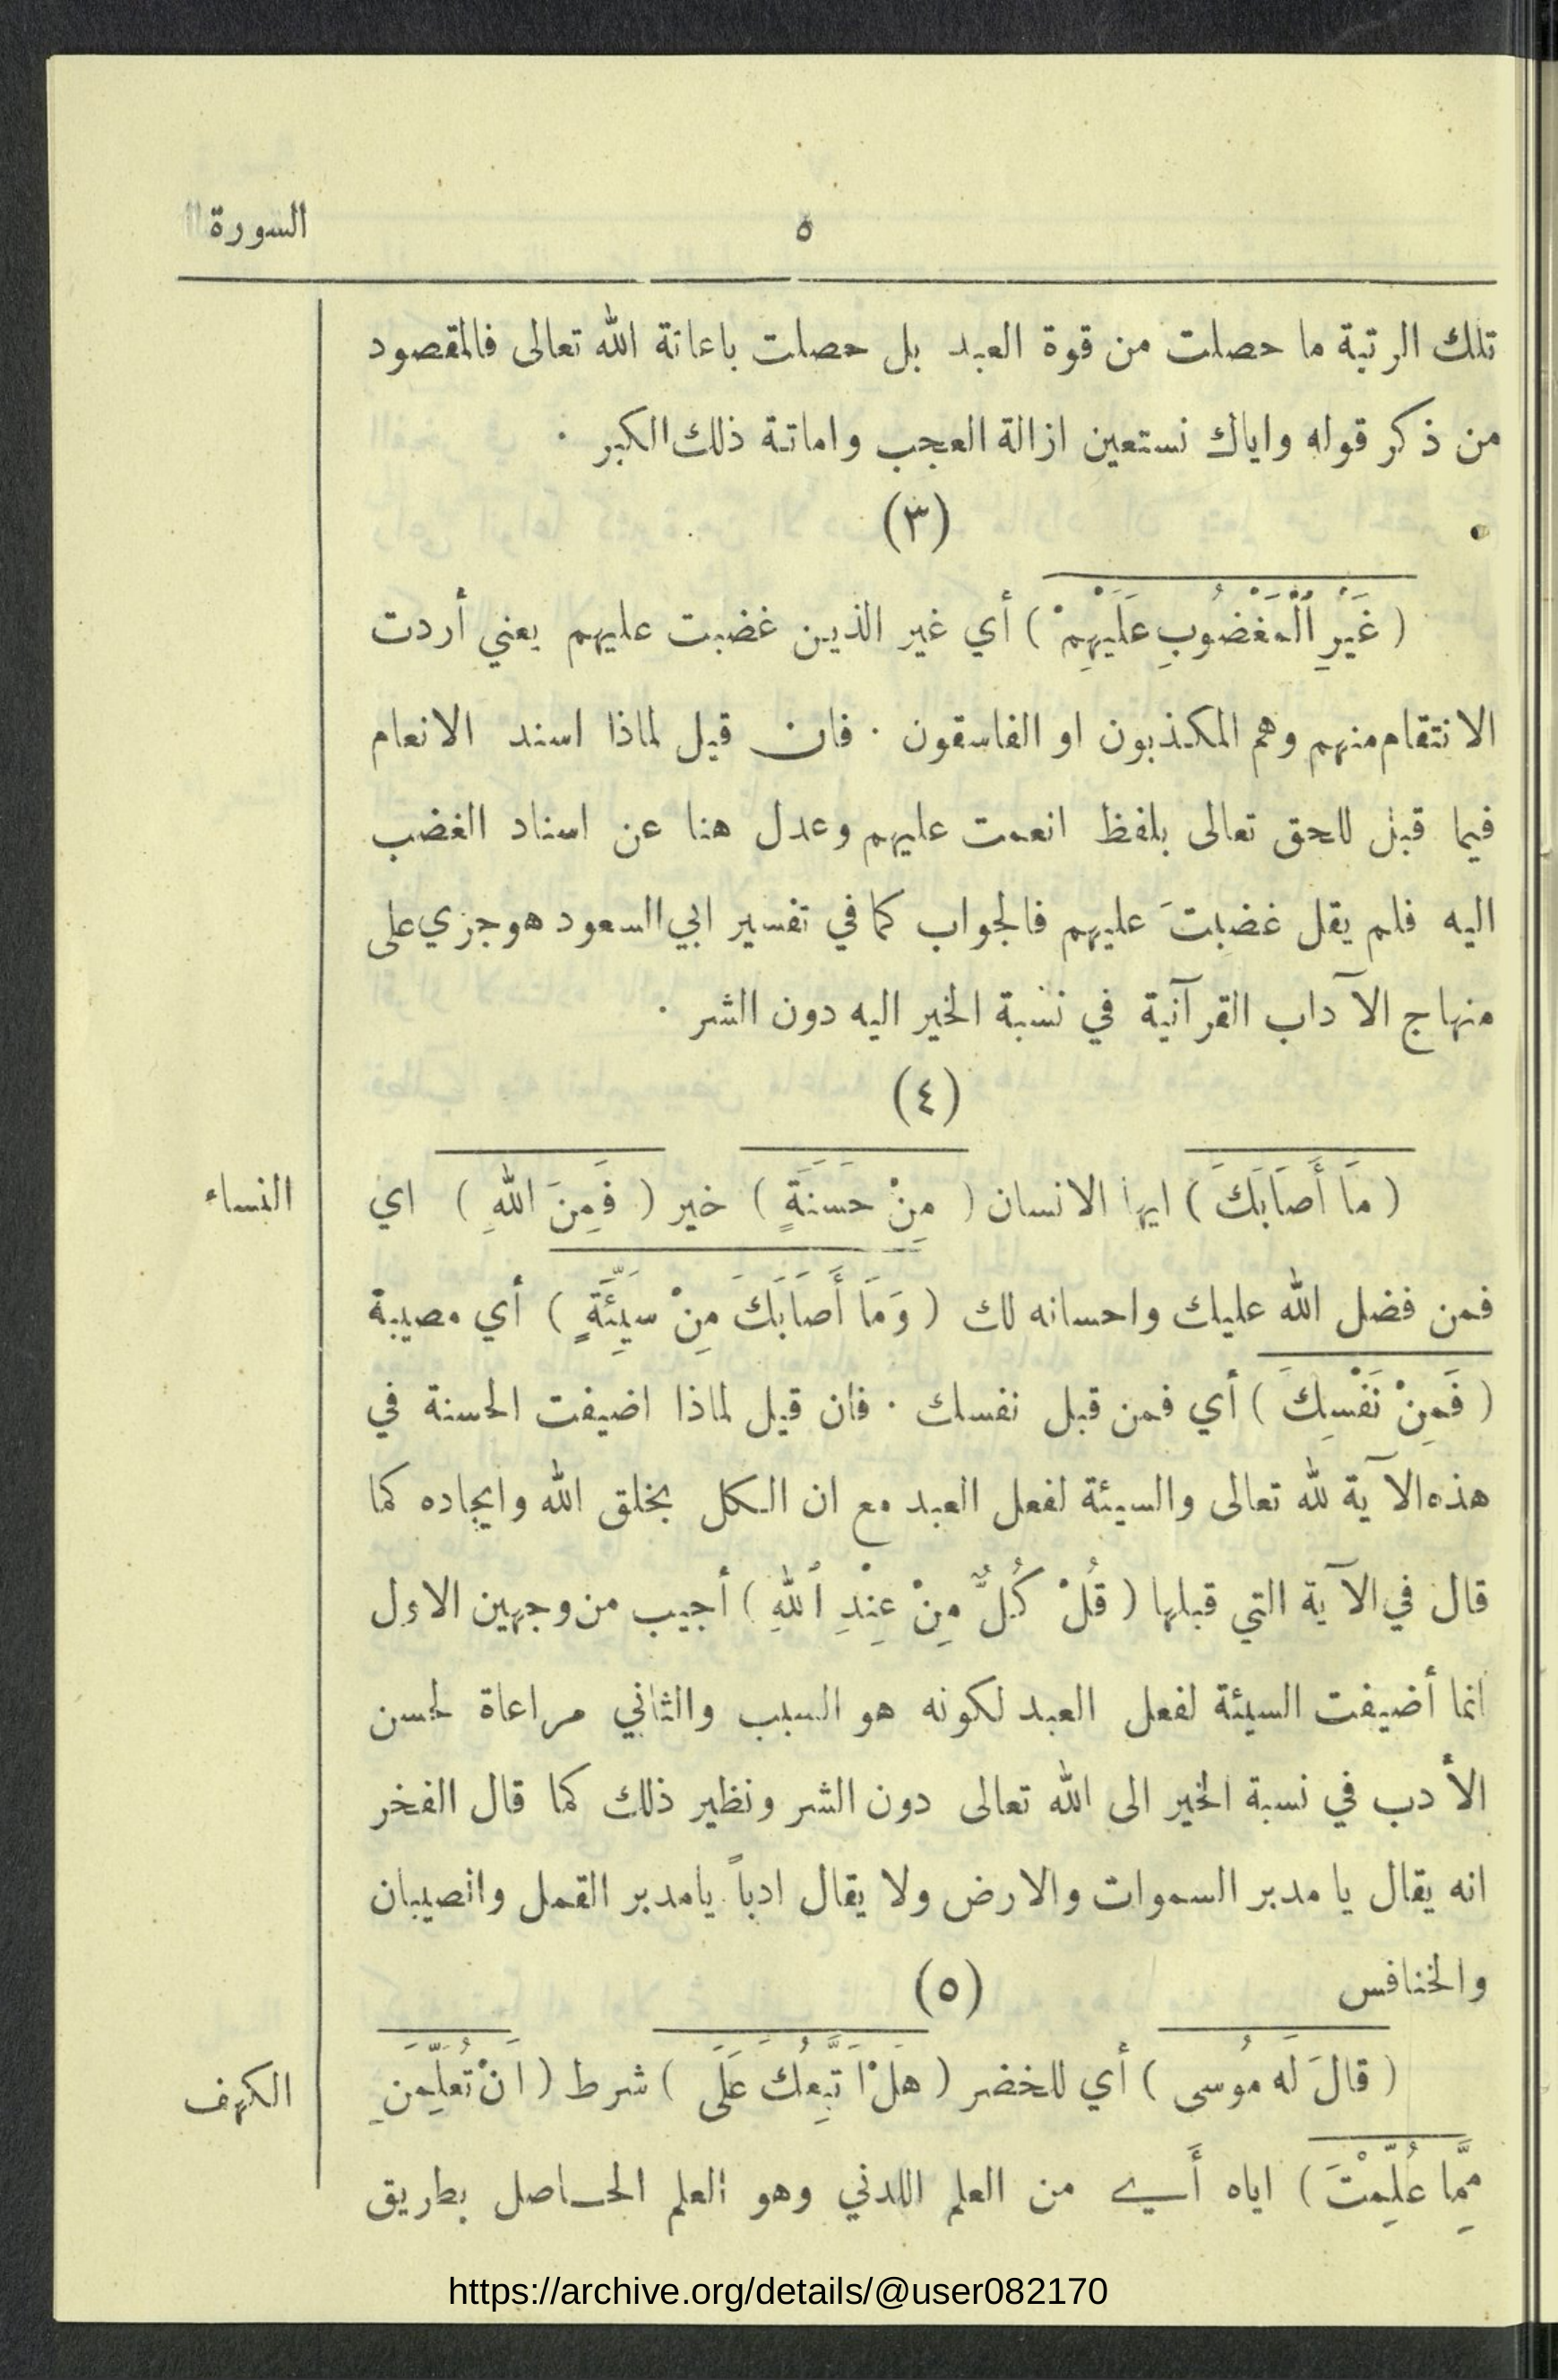 ٥ السورة
تلك الرتبة ما حصلت من قوة العبد بل حصلت باعانة الله تعالى فالمقصود
من ذكر قوله واياك نستعين ازالة العجب واماتة ذلك الكبر ٠
(٣)
( غَيْرِ الْمَغْضُوبِ عَلَيْهِمْ ) أي غير الذين غضبت عليهم يعني أردت
الانتقام منهم وهم المكذبون او الفاسقون ٠ فان قيل لماذا اسند الانعام
فيما قبل للحق تعالى بلفظ انعمت عليهم وعدل هنا عن اسناد الغضب
اليه فلم يقل غضبتَ عليهم فالجواب كما في تفسير ابي السعود هو جري على
منهاج الآداب القرآنية في نسبة الخير اليه دون الشر ٠
(٤)
( مَا أَصَابَكَ ) ايها الانسان ( مِنْ حَسَنَةٍ ) خير ( فَمِنَ اللهِ ) اي
النساء
فمن فضل الله عليك واحسانه لك ( وَمَا أَصَابَكَ مِنْ سَيِّئَةٍ ) أي مصيبة
( فَمِنْ نَفْسِكَ ) أي فمن قبل نفسك ٠ فان قيل لماذا اضيفت الحسنة في
هذه الآية لله تعالى والسيئة لفعل العبد مع ان الكل بخلق الله وايجاده كما
قال في الآية التي قبلها ( قُلْ كُلٌّ مِنْ عِنْدِ ٱللهِ ) أجيب من وجهين الاول
انما أضيفت السيئة لفعل العبد لكونه هو السبب والثاني مراعاة لحسن
الأدب في نسبة الخير الى الله تعالى دون الشر ونظير ذلك كما قال الفخر
انه يقال يا مدبر السموات والارض ولا يقال ادباً يامدبر القمل والصيبان
والخنافس
(٥)
( قالَ لَه مُوسى ) أي للخضر ( هَلْ اَتَّبِعُكَ عَلَى ) شرط ( اَنْ تُعَلِّمَنِ
الكهف
مِمَّا عُلِّمْتَ ) اياه أَي من العلم اللدني وهو العلم الحاصل بطريق
https://archive.org/details/@user082170